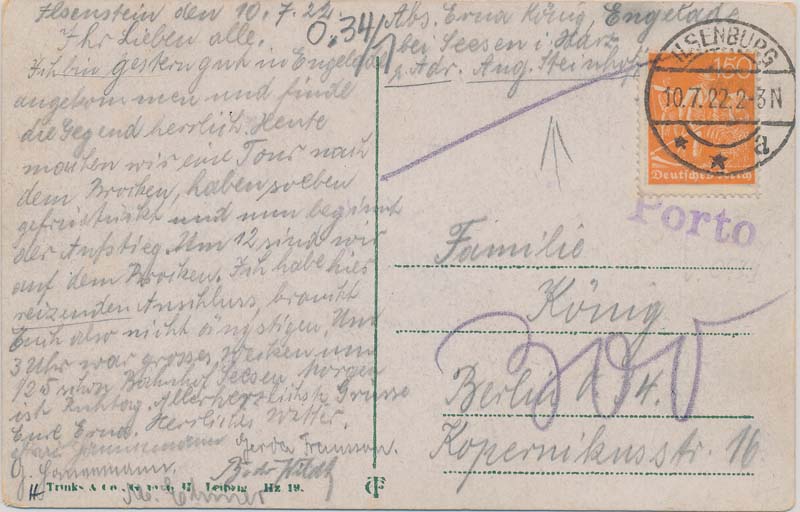 Ilsenstein den 10.7.22
Ihr Lieben alle.
Ich bin gestern gut in Engelade
angekommen und finde
die Gegend herrlich. Heute
machen wir eine Tour nach
dem Brocken, haben soeben
gefrühstückt und nun beginnt
der Aufstieg. Um 12 sind wir
auf dem Brocken. Ich habe hier
reizenden Anschluss, braucht
Euch also nicht ängstigen. Um
3 Uhr war grosses Wecken um
1/2 5 schon Bahnhof Seesen. Morgen
ist Ruhtag. Allerherzlichste Grüsse
Eure Erna. Herrliches Wetter.
Gerda
Abs. Erna König, Engelade
bei Seesen i. Harz
p. Adr. Aug. Steinhoff
0.34/1
ILSENBURG
10.7.22.2-3N
a
150
Deutsches Reich
Porto
Familie
König
Berlin O 34.
Kopernikusstr. 16
300
Trinks & Co., G.m.b.H. Leipzig Hz 19.